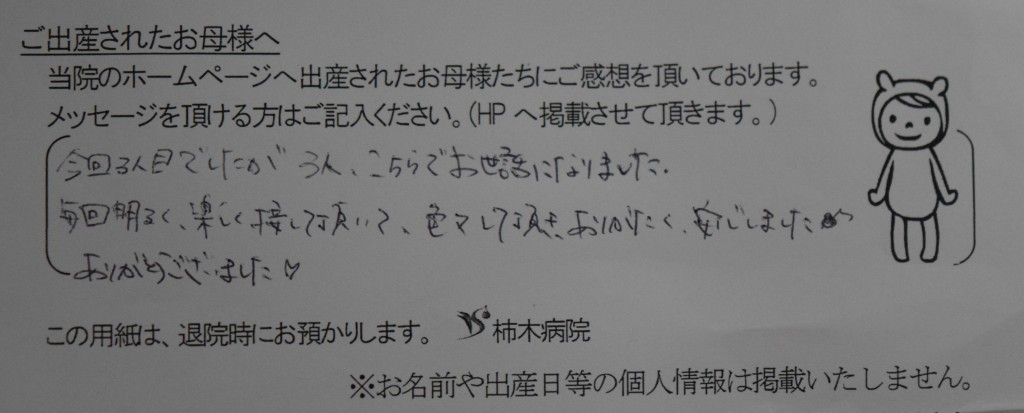 ご出産されたお母様へ
当院のホームページへ出産されたお母様たちにご感想を頂いております。
メッセージを頂ける方はご記入ください。(HPへ掲載させて頂きます。)
今回3人目でしたが 3人、こちらでお世話になりました.
毎回明るく、楽しく接して頂いて、色々して頂き、ありがたく、安心しました
ありがとうございました♡
この用紙は、退院時にお預かりします。 柿木病院
※お名前や出産日等の個人情報は掲載いたしません。